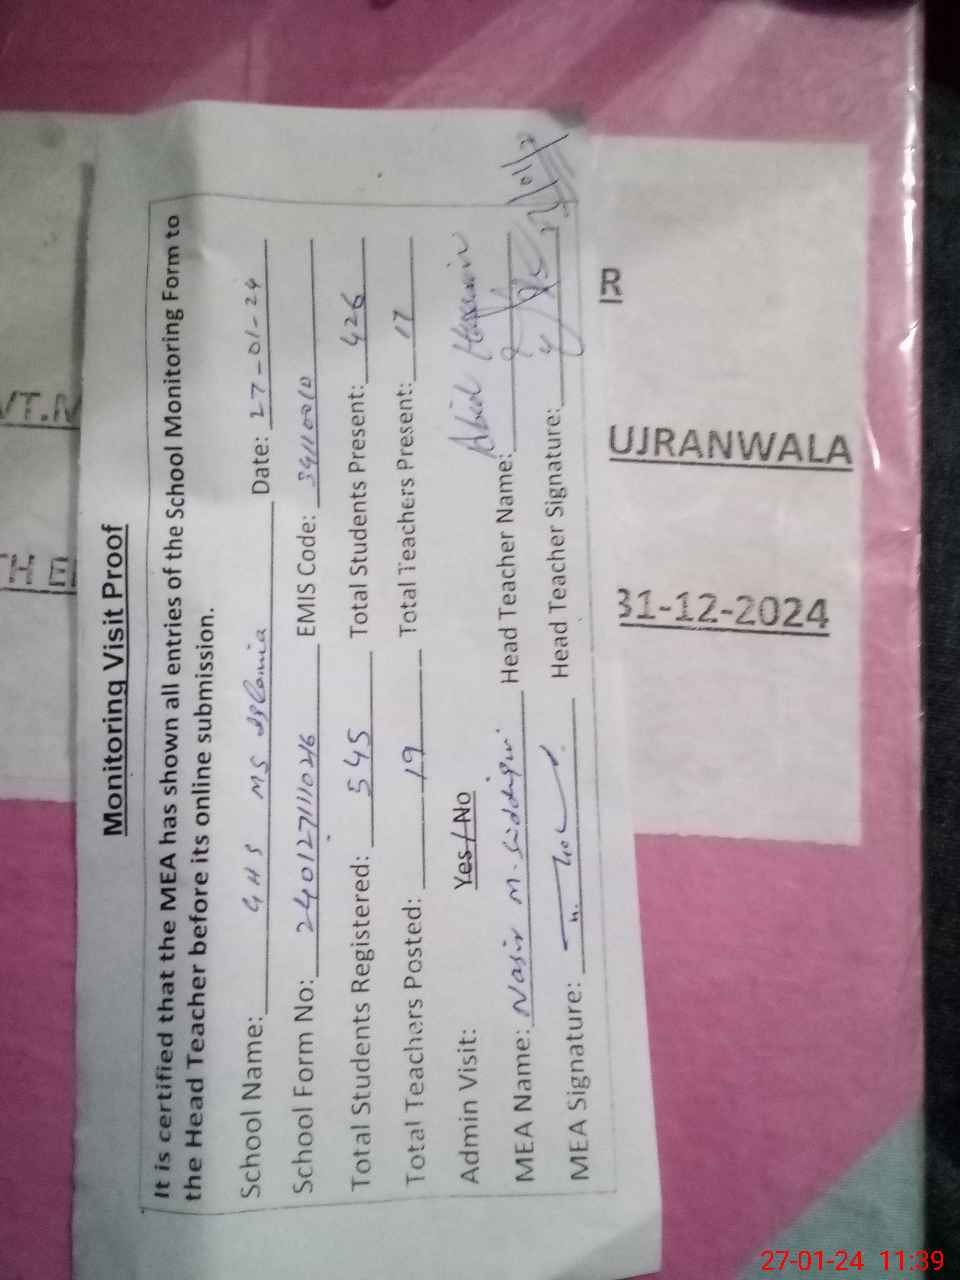 Monitoring Visit Proof
It is certified that the MEA has shown all entries of the School Monitoring Form to
the Head Teacher before its online submission.
School Name: GHS MS Islamia Date: 27-01-24
School Form No: 240127111046 EMIS Code: 34110010
Total Students Registered: 545 Total Students Present: 426
Total Teachers Posted: 19 Total Teachers Present: 17
Admin Visit: Yes/No
MEA Name: Nasir M. Siddiqui Head Teacher Name: Abid Hussain
MEA Signature: Head Teacher Signature:
VT.N
R
UJRANWALA
31-12-2024
27-01-24 11:39